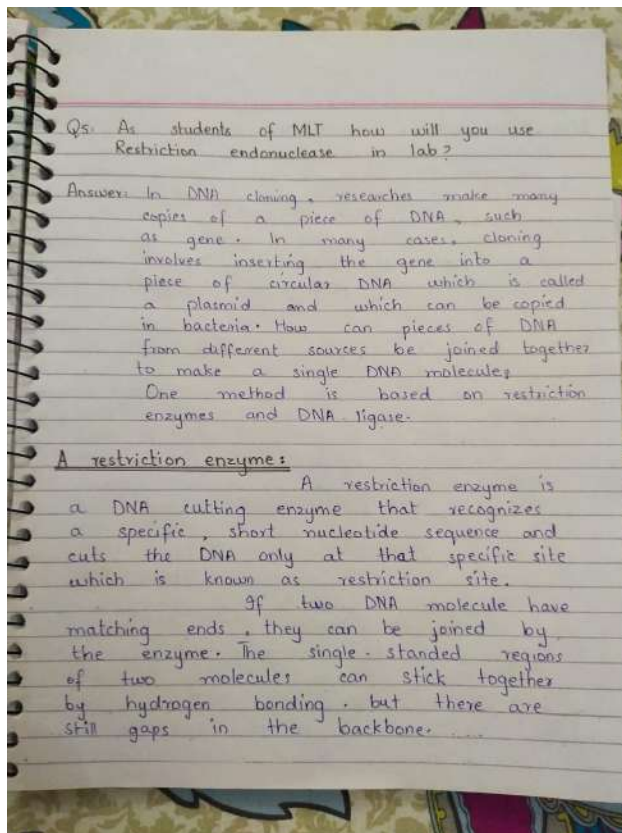 Qs. As students of MLT how will you use
Restriction endonuclease in lab?
Answer: In DNA cloning, researches make many
copies of a piece of DNA, such
as gene. In many cases, cloning
involves inserting the gene into a
piece of circular DNA which is called
a plasmid and which can be copied
in bacteria. How can pieces of DNA
from different sources be joined together
to make a single DNA molecule?
One method is based on restriction
enzymes and DNA ligase.
A restriction enzyme:
A restriction enzyme is
a DNA cutting enzyme that recognizes
a specific, short nucleotide sequence and
cuts the DNA only at that specific site
which is known as restriction site.
If two DNA molecule have
matching ends, they can be joined by
the enzyme. The single-standed regions
of two molecules can stick together
by hydrogen bonding. but there are
still gaps in the backbone. ....